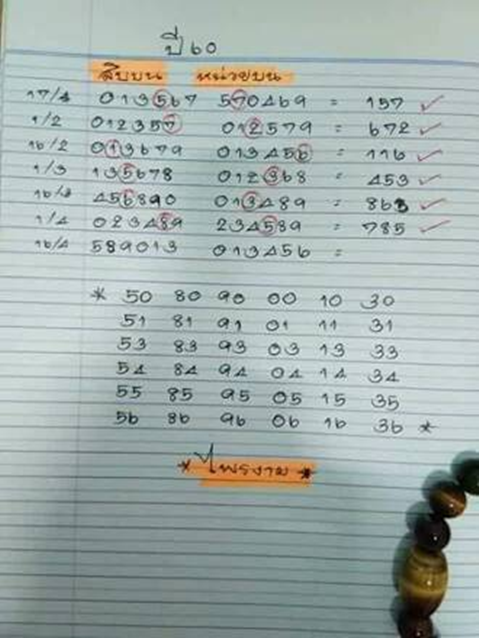 ปี 60
สิบบน หน่วยบน
17/1 013567 570469 = 157 ✓
1/2 012357 012579 = 672 ✓
16/2 013679 013456 = 116 ✓
1/3 135678 012368 = 453 ✓
16/3 456890 013489 = 863 ✓
1/4 023489 234589 = 785 ✓
16/4 589013 013456 =
* 50 80 90 00 10 30
51 81 91 01 11 31
53 83 93 03 13 33
54 84 94 04 14 34
55 85 95 05 15 35
56 86 96 06 16 36 *
* ไพรงาม *